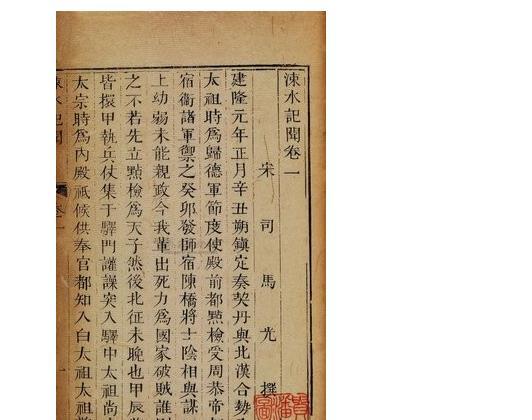 涑水記聞卷一
宋司馬光撰
建隆元年正月辛丑朔鎮定奏契丹與北漢合勢
太祖時爲歸德軍節度使殿前都點檢受周恭帝
宿衞諸軍禦之癸卯發師宿陳橋將士陰相與謀
上幼弱未能親政今我輩出死力爲國家破賊誰
之不若先立點檢爲天子然後北征未晚也甲辰
皆擐甲執兵仗集于驛門讙譟突入驛中太祖尚
太宗時爲内殿祗候供奉官都知入白太祖太祖
涑水記聞 卷一 一